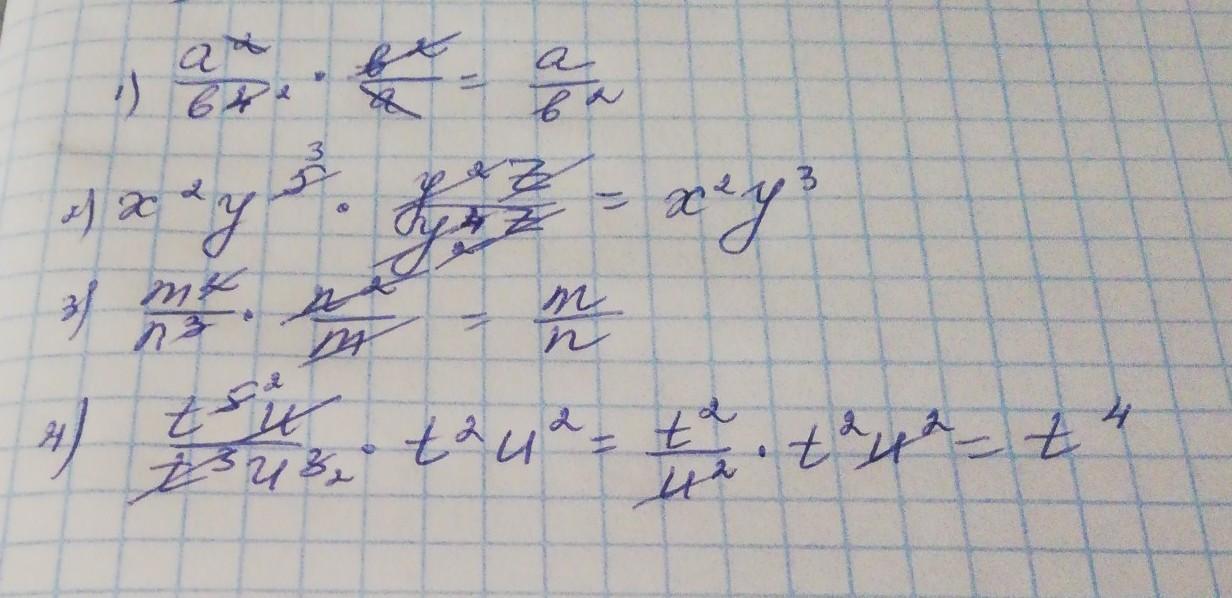 1) a²/b⁴ ² · b²/a = a/b²
2) x²y⁵ ³ · y²z/y⁴z ² = x²y³
3) m²/n³ · n²/m = m/n
4) t⁵ ²u/t³u³ ₂ · t²u² = t²/u² · t²u² = t⁴